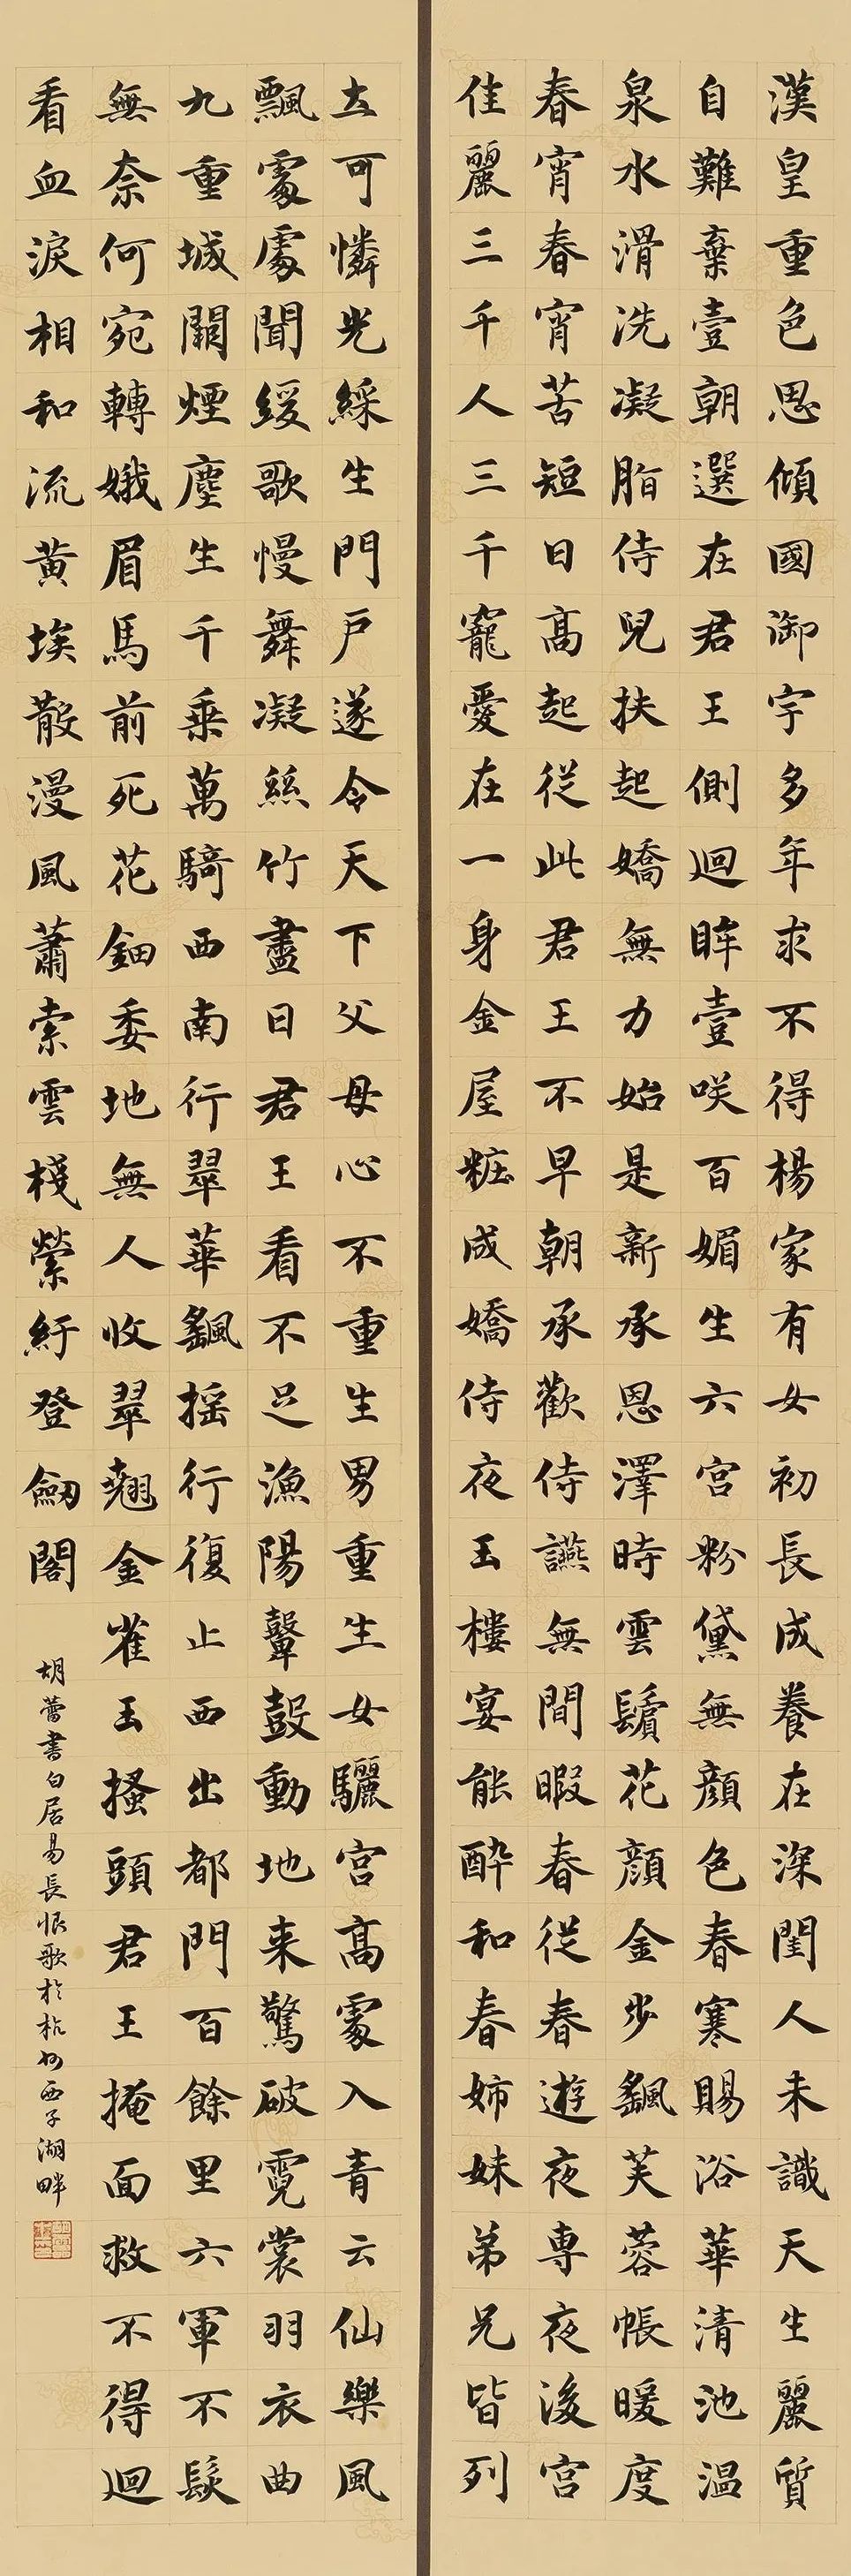 漢皇重色思傾國御宇多年求不得楊家有女初長成養在深閨人未識天生麗質
自難棄壹朝選在君王側迴眸壹咲百媚生六宮粉黛無顏色春寒賜浴華清池温
泉水滑洗凝脂侍兒扶起嬌無力始是新承恩澤時雲鬢花顏金步飖芙蓉帳暖度
春宵春宵苦短日高起從此君王不早朝承歡侍讌無間暇春從春遊夜專夜後宮
佳麗三千人三千寵愛在一身金屋粧成嬌侍夜玉樓宴能醉和春姊妹弟兄皆列
土可憐光綵生門户遂令天下父母心不重生男重生女驪宮高處入青云仙樂風
飄處處聞緩歌慢舞凝絲竹盡日君王看不足漁陽鼙鼓動地来驚破霓裳羽衣曲
九重城闕煙塵生千乘萬騎西南行翠華飖摇行復止西出都門百餘里六軍不髮
無奈何宛轉娥眉馬前死花鈿委地無人收翠翹金雀玉搔頭君王掩面救不得迴
看血淚相和流黄埃散漫風蕭索雲棧縈紆登劒閣
胡蕾書白居易長恨歌於杭州西子湖畔